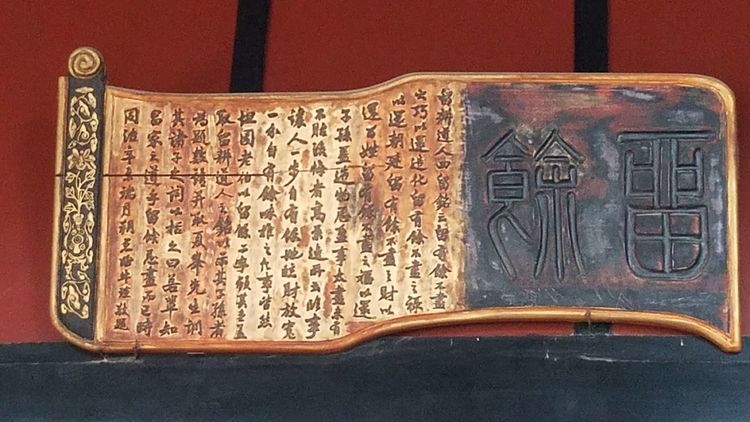 留餘
留耕道人四留銘云留有餘不盡
之巧以還造化留有餘不盡之祿
以還朝廷留有餘不盡之財以
還百姓留有餘不盡之福以還
子孫蓋造物忌盈事太盡未有
不貽後悔者高景逸所云臨事
讓人一步自有餘地臨財放寬
一分自有餘味推之凡事皆然
坦園老伯以留餘二字顏其堂蓋
取留耕道人之銘以示其子孫者
為題數語并取夏峯先生訓
其諸子之詞以括之曰吾輩知
昌家之道乎留餘忌盡而已時
同治辛未端月朔愚姪牛瑄敬題